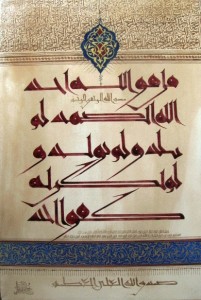 قل هو الله احد
بسم الله الرحمن الرحيم
الله الصمد لم
يلد و لم يولد و
لم يكن له
كفوا احد
صدق الله العلي العظيم